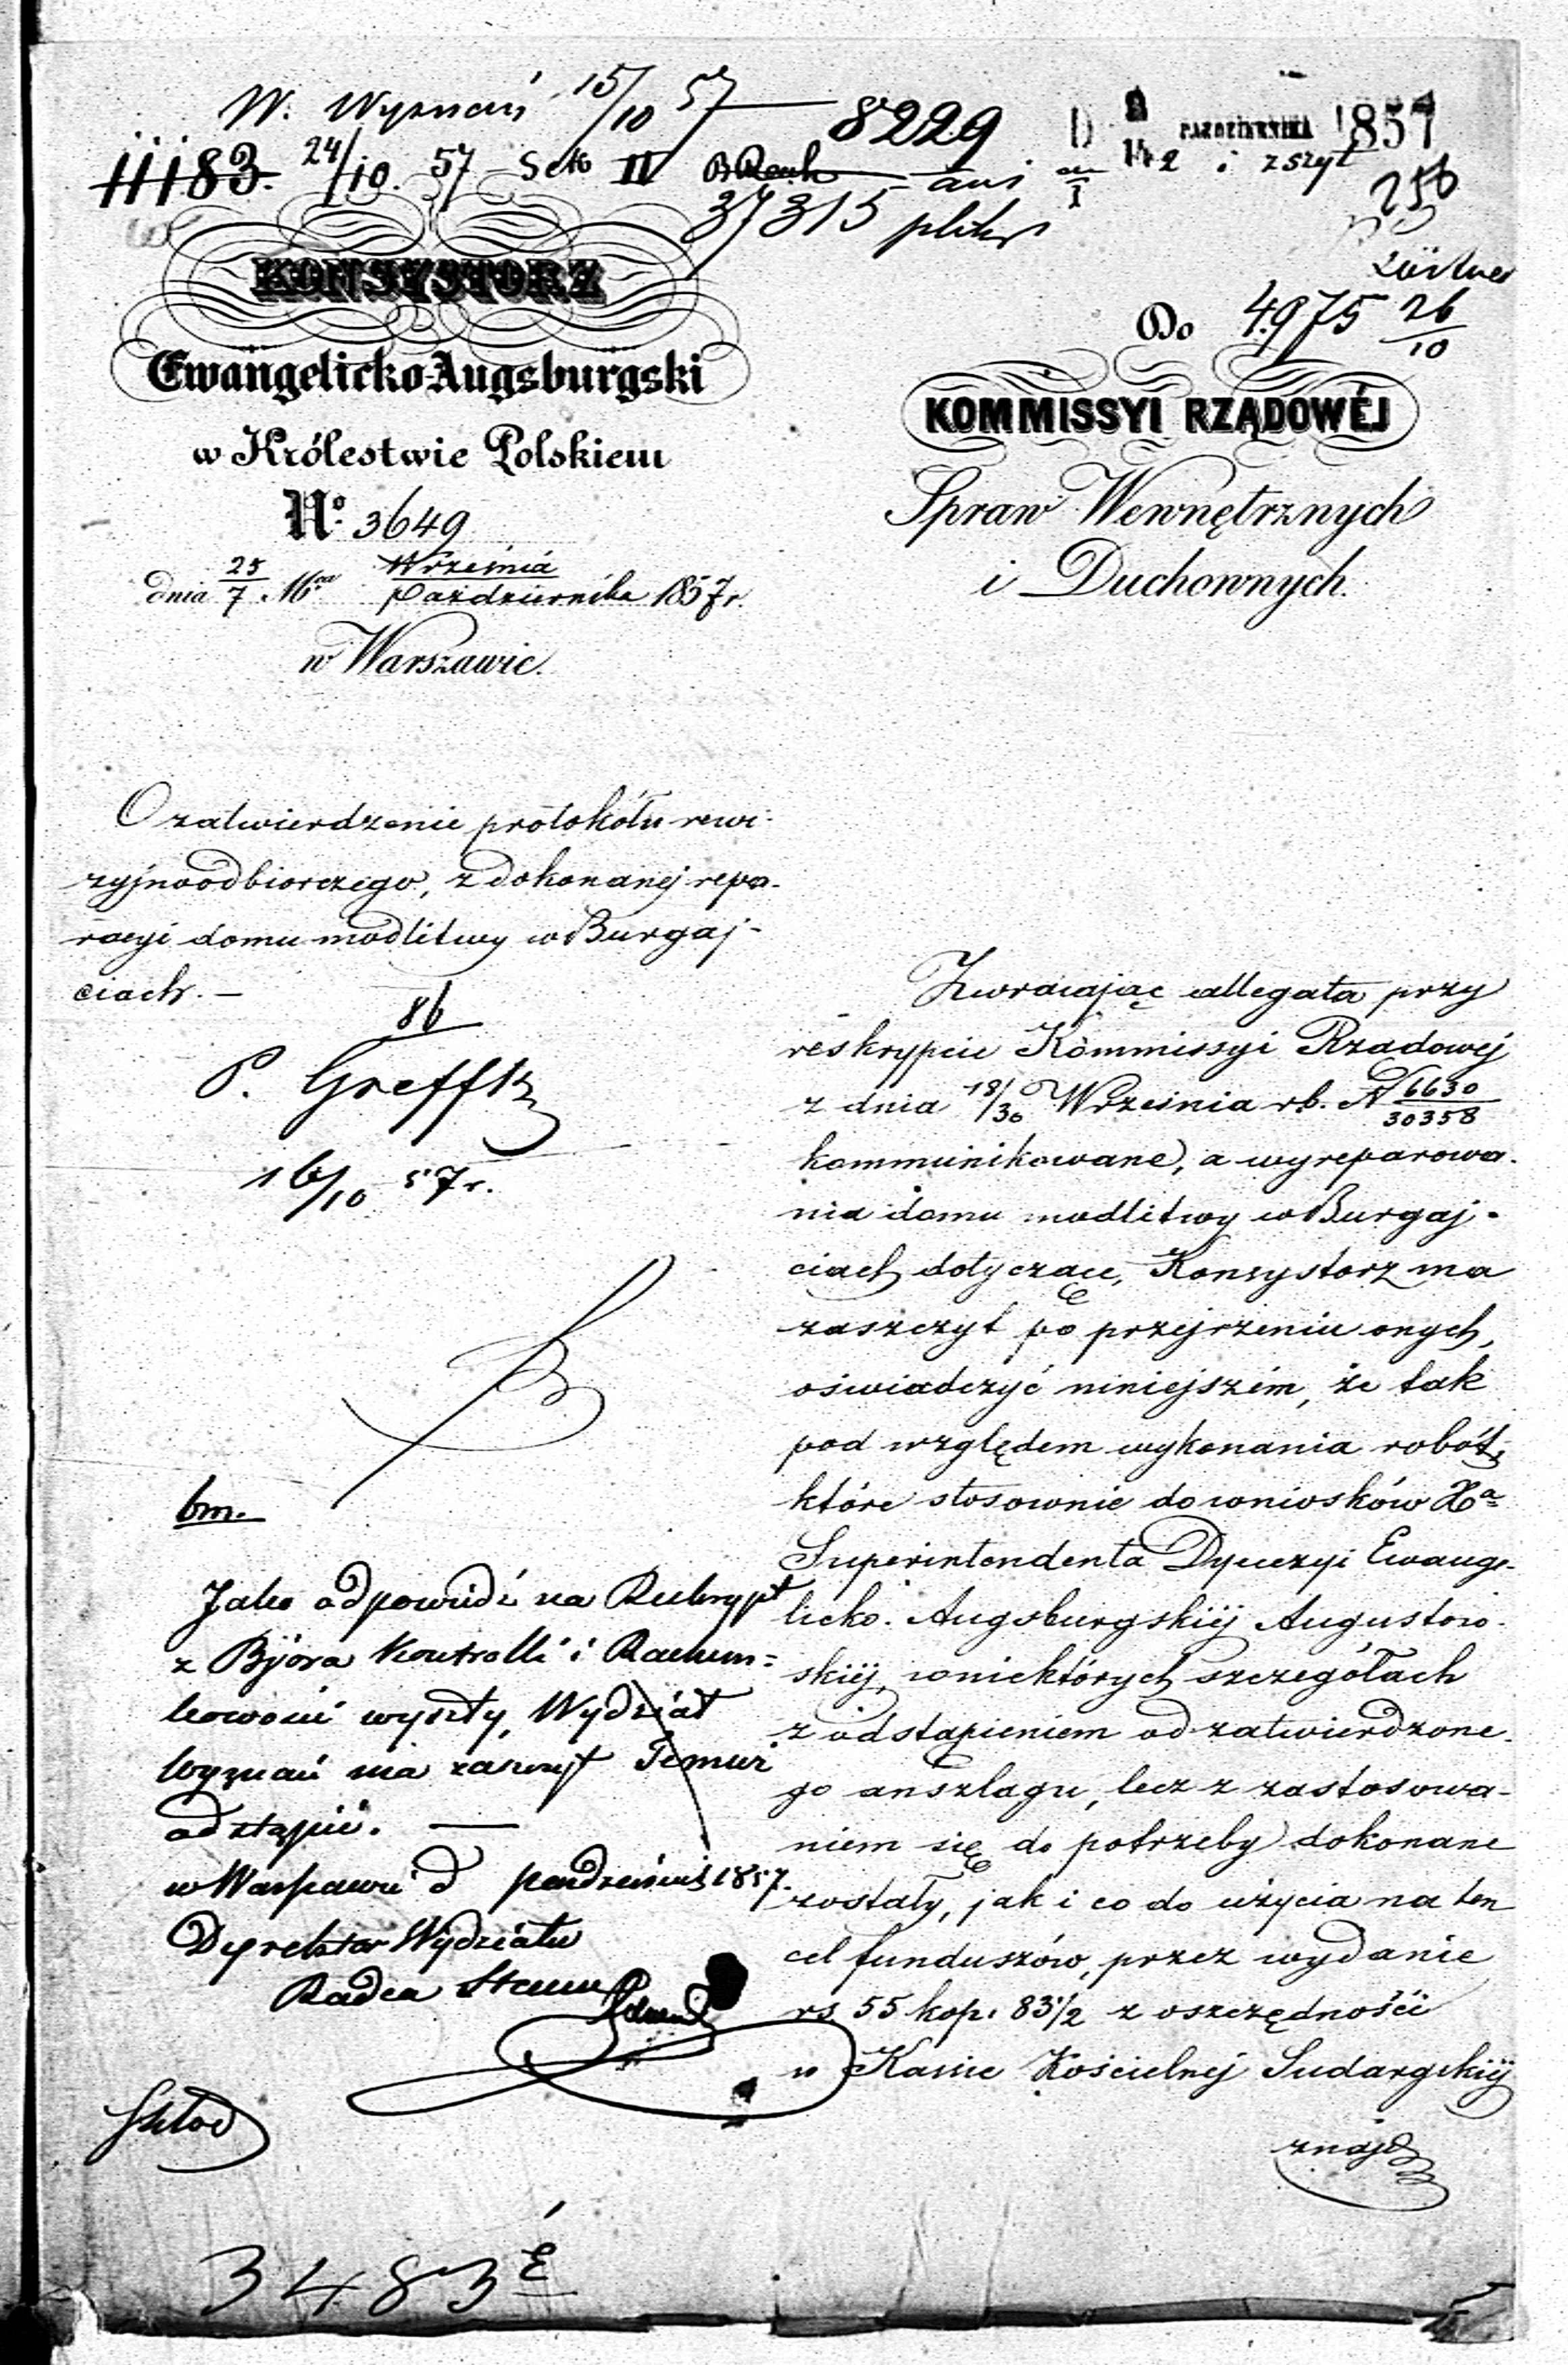 W. Wyznań 15/10 57 8229 D 2/14 PAŹDZIERNIKA 1857
11183. 24/10. 57 Sek IV ani 2 i zszyt
37315 plików 256
KONSYSTORZ
Ewangelicko Augsburgski
w Królestwie Polskiem
No. 3649
dnia 25/7 Mca Września/Października 1857 r.
w Warszawie.
Do 4975 26/10
KOMMISSYI RZĄDOWÉJ
Spraw Wewnętrznych
i Duchownych.
O zatwierdzenie protokółu rewi-
zyjnoodbiorczego, z dokonanej repa-
racyi domu modlitwy w Burgaj-
ciach. —
86
P. Greffk
16/10 57 r.
bm.
Jako odpowiedź na Reskrypt
z Bjóra Kontrolli i Rachun=
kowości wyszły, Wydział
Wyznań ma zaszczyt Temuż
odstąpić. —
w Warszawie d października 1857.
Dyrektor Wydziału
Radca Stanu
3483
Zwracając allegata przy
reskrypcie Kommissyi Rządowej
z dnia 18/30 Września rb. N 6630/30358
kommunikowane, a wyreparowa-
nia domu modlitwy w Burgaj-
ciach dotyczące, Konsystorz ma
zaszczyt po przejrzeniu onych,
oświadczyć niniejszém, że tak
pod względem wykonania robót,
które stosownie do wniosków Xa
Superintendenta Dyecezyi Ewange-
licko. Augsburgskiéj Augustow-
skiéj, w niektórych szczegółach
z odstąpieniem od zatwierdzone-
go anszlagu, lecz z zastosowa-
niem się do potrzeby dokonane
zostały, jak i co do użycia na ten
cel funduszów, przez wydanie
rs 55 kop. 83 1/2 z oszczędności
w Kassie Kościelnej Sudargskiéj
znajd